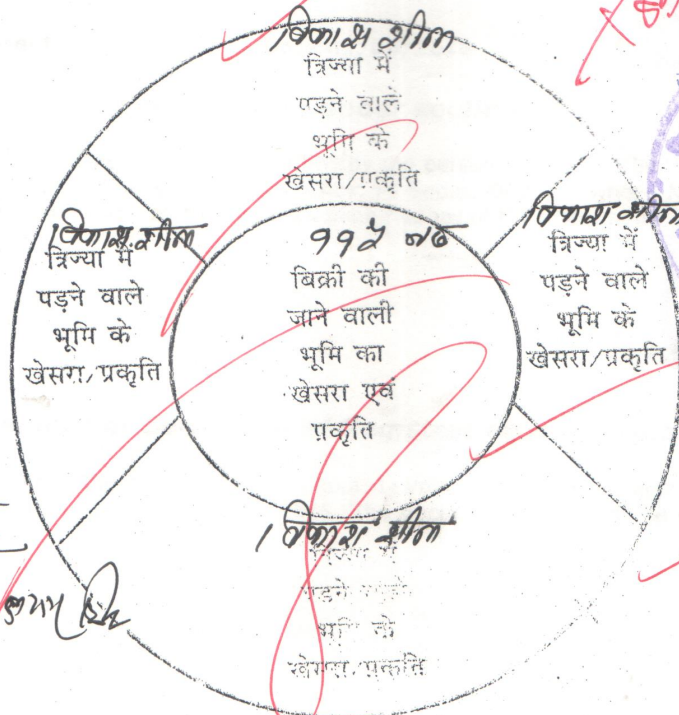 विकाश शील
त्रिज्या में
पड़ने वाले
भूमि के
खेसरा/प्रकृति
विकाश शील
त्रिज्या में
पड़ने वाले
भूमि के
खेसरा/प्रकृति
बिक्री की
जाने वाली
भूमि का
खेसरा एवं
प्रकृति
विकाश शील
त्रिज्या में
पड़ने वाले
भूमि के
खेसरा/प्रकृति
विकाश शील
त्रिज्या में
पड़ने वाले
भूमि के
खेसरा/प्रकृति